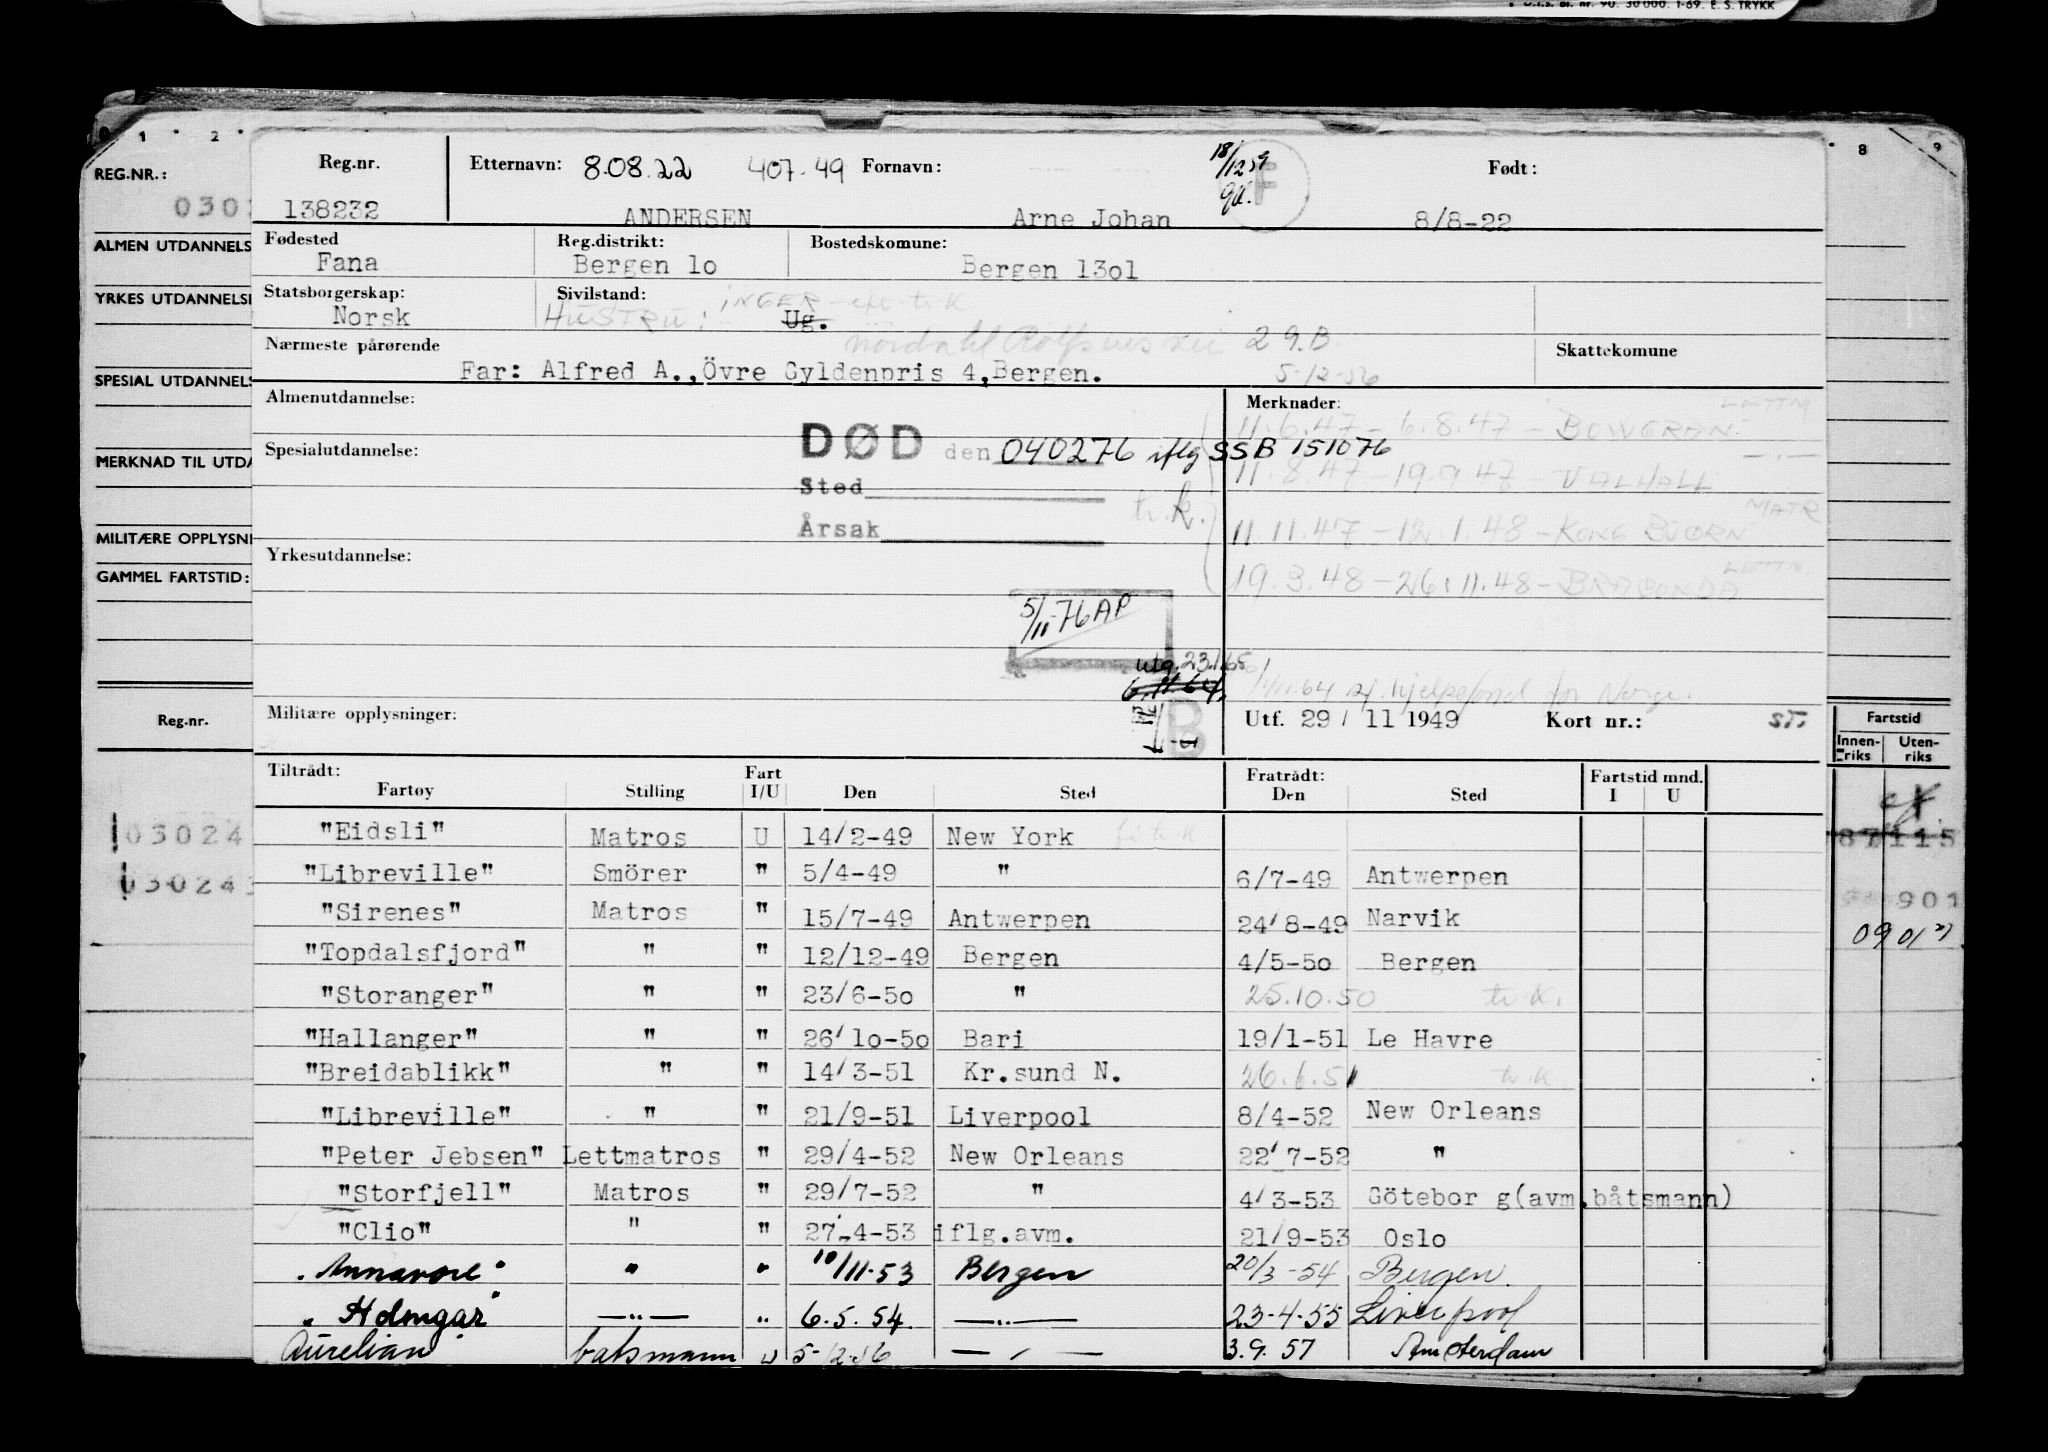 D.t.s. bl. nr. 90. 30 000. 1-69. E. S. TRYKK
0 1 2 8 9
REG.NR.:
Reg.nr. Etternavn: 8.08.22 407-49 Fornavn: 18/12 59 F Født:
138232 ANDERSEN Arne Johan 8/8-22
ALMEN UTDANNELS
Fødested Reg.distrikt: Bostedskomune:
Fana Bergen 1o Bergen 13o1
YRKES UTDANNELSE
Statsborgerskap: Sivilstand: INGER
Norsk HUSTRU: Ug.
Nordahl Rolfsens vei 29.B
Nærmeste pårørende Skattekomune
Far: Alfred A., Övre Gyldenpris 4, Bergen. 5-12-56
SPESIAL UTDANNELS
Almenutdannelse: Merknader:
LETTM
11.6.47 - 6.8.47 - BOWGRAN
DØD den 040276 iflg SSB 151076
Spesialutdannelse:
MERKNAD TIL UTDA
11.8.47 - 19.9.47 VALHALL
Sted
MATR
tr.k.
Årsak 11.11.47 - 12.1.48 - KONG BJØRN
MILITÆRE OPPLYSNI
Yrkesutdannelse:
LETTM.
GAMMEL FARTSTID: 19.3.48 - 26.11.48 -
5/11-76 AP
utg. 23.1.65
6.11.64.
Militære opplysninger: B Utf. 29 / 11 1949 Kort nr.: ST.
Reg.nr. Fartstid
Innen-riks Uten-riks
Tiltrådt: Fart Fratrådt: Fartstid mnd.
Fartøy Stilling I/U Den Sted Den Sted I U
"Eidsli" Matros U 14/2-49 New York
03024 87115
"Libreville" Smörer " 5/4-49 " 6/7-49 Antwerpen
"Sirenes" Matros " 15/7-49 Antwerpen 24/8-49 Narvik
901
09 01
"Topdalsfjord" " " 12/12-49 Bergen 4/5-5o Bergen
"Storanger" " " 23/6-5o " 25.10.50 tr.K.
"Hallanger" " " 26/1o-5o Bari 19/1-51 Le Havre
"Breidablikk" " " 14/3-51 Kr.sund N. 26.6.51 tr.k
"Libreville" " " 21/9-51 Liverpool 8/4-52 New Orleans
"Peter Jebsen" Lettmatros " 29/4-52 New Orleans 22/7-52 "
"Storfjell" Matros " 29/7-52 " 4/3-53 Götebor g(avm.båtsmann)
"Clio" " " 27.-4-53 iflg.avm. 21/9-53 Oslo
"Annavore" " " 10/11-53 Bergen 20/3-54 Bergen.
"Holmgar" —"— " 6.5.54. —"— 23-4-55 Liverpool
Aurelian batsmann U 5-12-56 — " — 3.9.57 Amsterdam